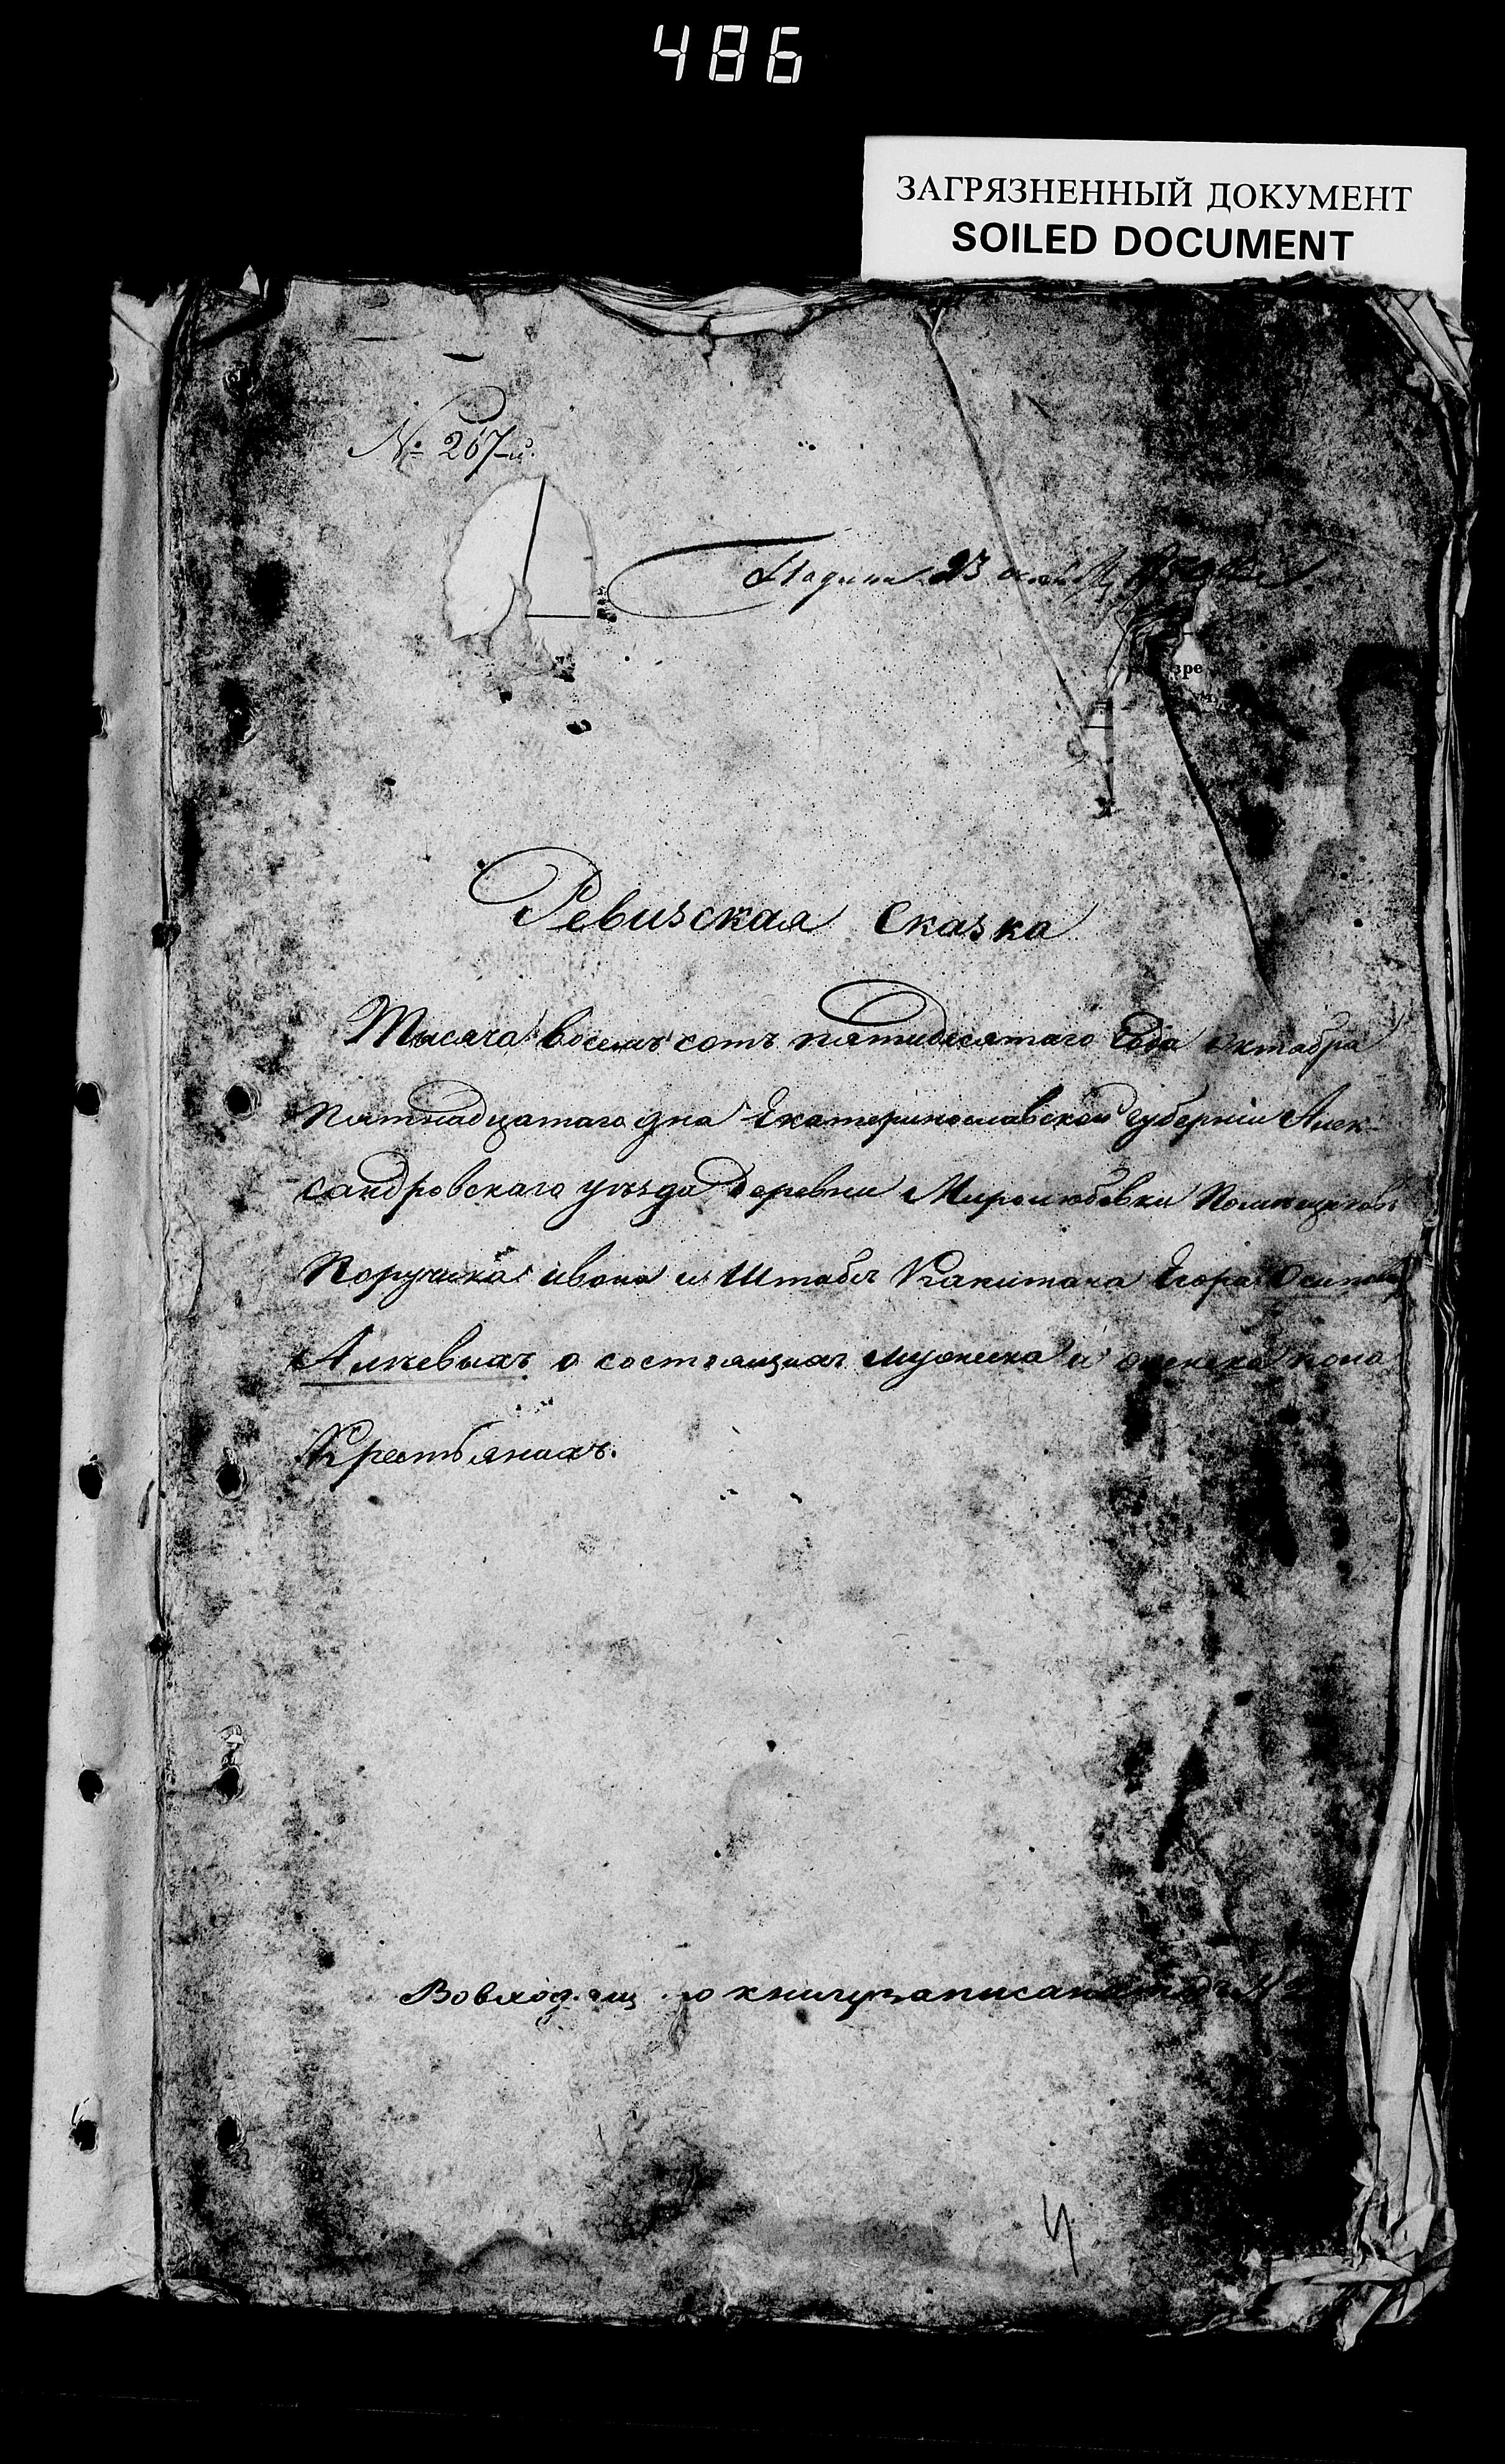 486
ЗАГРЯЗНЕННЫЙ ДОКУМЕНТ
SOILED DOCUMENT
№ 267-й.
23
зре
Ревизская Сказка
Тысяча восемь сотъ пятидесятаго Года Октября
пятнадцатаго дня Екатеринославской губерніи Алек-
сандровскаго уѣзда деревни Миролюбовки Помѣщиковъ
Поручика Ивана и Штабсъ Капитана Егора Осиповыхъ
Алчевыхъ о состоящихъ мужеска и женска пола
Крестьянахъ.
Во входящ книгу записана подъ №
4